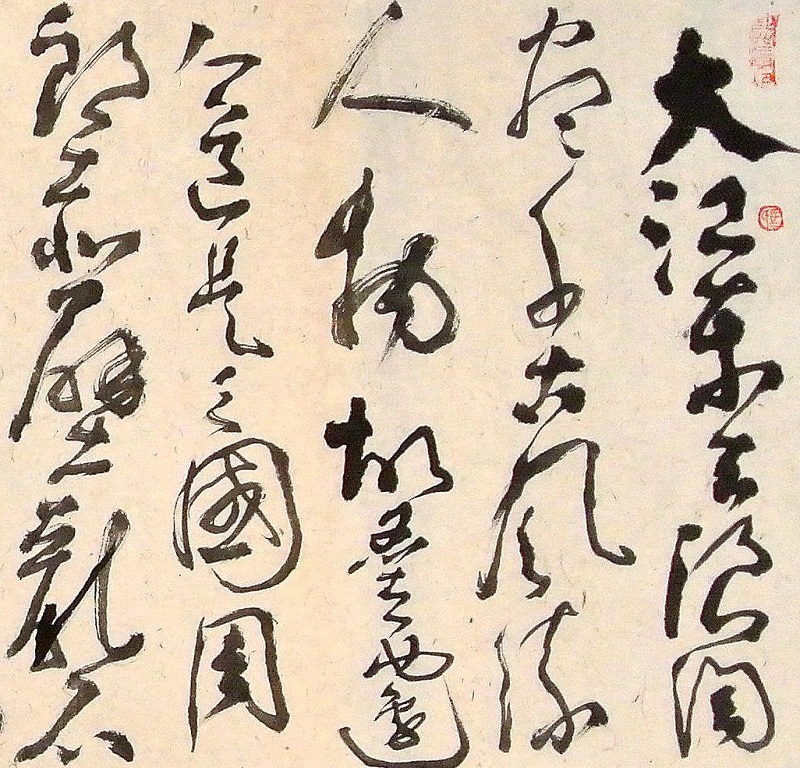 大江東去浪淘
盡千古風流
人物故壘西邊
人道是三國周
郎赤壁亂石